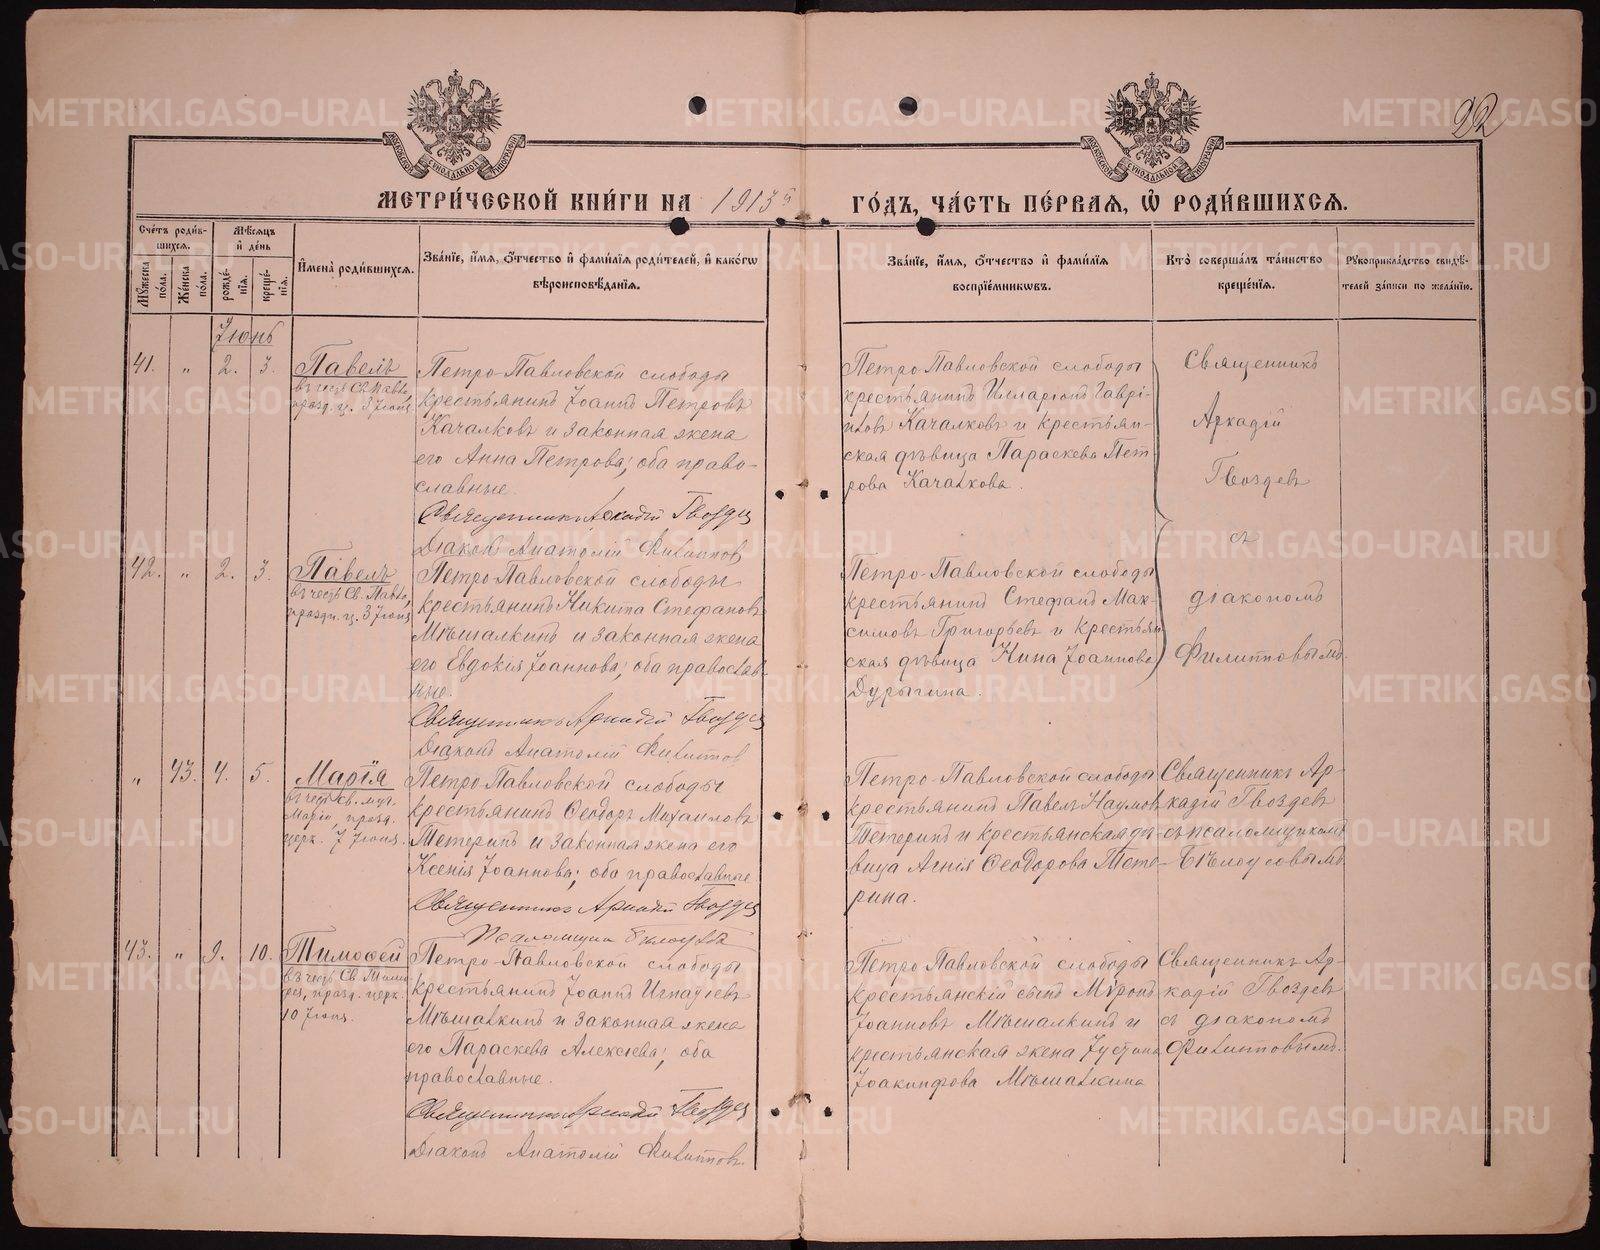 22
МОСКОВСКОЙ СѴНОДАЛЬНОЙ ТИПОГРАФІИ
МОСКОВСКОЙ СѴНОДАЛЬНОЙ ТИПОГРАФІИ
МЕТРИ́ЧЕСКОЙ КНИ́ГИ НА 1913й ГО́ДЪ, ЧА́СТЬ ПЕ́РВАЯ, Ѡ РОДИ́ВШИХСЯ.
Сче́тъ роди́в-
шихся.
Мꙋжеска по́ла.
Же́нска по́ла.
Мѣ́сяцъ
и҆ де́нь
рожде́-
нїѧ.
креще́-
нїѧ.
И҆мена̀ роди́вшихся.
Зва́нїе, и҆́мя, ѻ҆́тчество и҆ фами́лїѧ роди́телей, и҆ како́гѡ
вѣроисповѣ́данїѧ.
Зва́нїе, и҆́мя, ѻ҆́тчество и҆ фами́лїѧ
воспрїе́мникѡвъ.
Кто̀ соверша́лъ та́инство
креще́нїѧ.
Рꙋкоприкла́дство свидѣ́-
телей за́писи по жела́нїю.
Іюнь
41. „ 2. 3. Павелъ
въ честь Св. Павла,
празд. ц. 3 Іюня
Петро-Павловской слободы
крестьянинъ Іоаннъ Петровъ
Качалковъ и законная жена
его Анна Петрова; оба право-
славные.
Священникъ Аркадій Гвоздев
Діаконъ Анатолій Филиппов
Петро-Павловской слободы
крестьянинъ Иларіонъ Гаврі-
иловъ Качалковъ и крестьян-
ская дѣвица Параскева Пет-
рова Качалкова.
Священникъ
Аркадій
Гвоздевъ
съ
діакономъ
Филипповымъ.
42. „ 2. 3. Павелъ
въ честь Св. Павла,
праздн. ц. 3 Іюня
Петро-Павловской слободы
крестьянинъ Никита Стефановъ
Мѣшалкинъ и законная жена
его Евдокія Іоаннова; оба православ-
ные.
Священникъ Аркадій Гвоздев
Діаконъ Анатолій Филиппов
Петро-Павловской слободы
крестьянинъ Стефанъ Мак-
симовъ Григорьевъ и крестьян
ская дѣвица Нина Іоаннова
Дурыгина.
„ 43. 4. 5. Марія
въ честь Св. муч.
Маріи, празд.
церк. 7 Іюня.
Петро-Павловской слободы
крестьянинъ Ѳеодоръ Михаиловъ
Тетеринъ и законная жена его
Ксенія Іоаннова; оба православные
Священникъ Аркадій Гвоздев
Псаломщик Бѣлоусов
Петро-Павловской слободы
крестьянинъ Павелъ Наумов
Тетеринъ и крестьянская дѣ-
вица Агнія Ѳеодорова Тете-
рина.
Священникъ Ар-
кадій Гвоздевъ
съ псаломщикомъ
Бѣлоусовымъ
43. „ 9. 10. Тимоѳей
въ честь Св. Тимо-
ѳея, празд. церк.
10 Іюня.
Петро-Павловской слободы
крестьянинъ Іоаннъ Игнатіевъ
Мѣшалкинъ и законная жена
его Параскева Алексіева; оба
православные.
Священникъ Аркадій Гвоздев
Діаконъ Анатолій Филипповъ.
Петро-Павловской слободы
крестьянскій сынъ Мѵронъ
Іоанновъ Мѣшалкинъ и
крестьянская жена Іустина
Іоакинфова Мѣшалкина
Священникъ Ар-
кадій Гвоздевъ
съ діакономъ
Филипповымъ.
METRIKI.GASO-URAL.RU